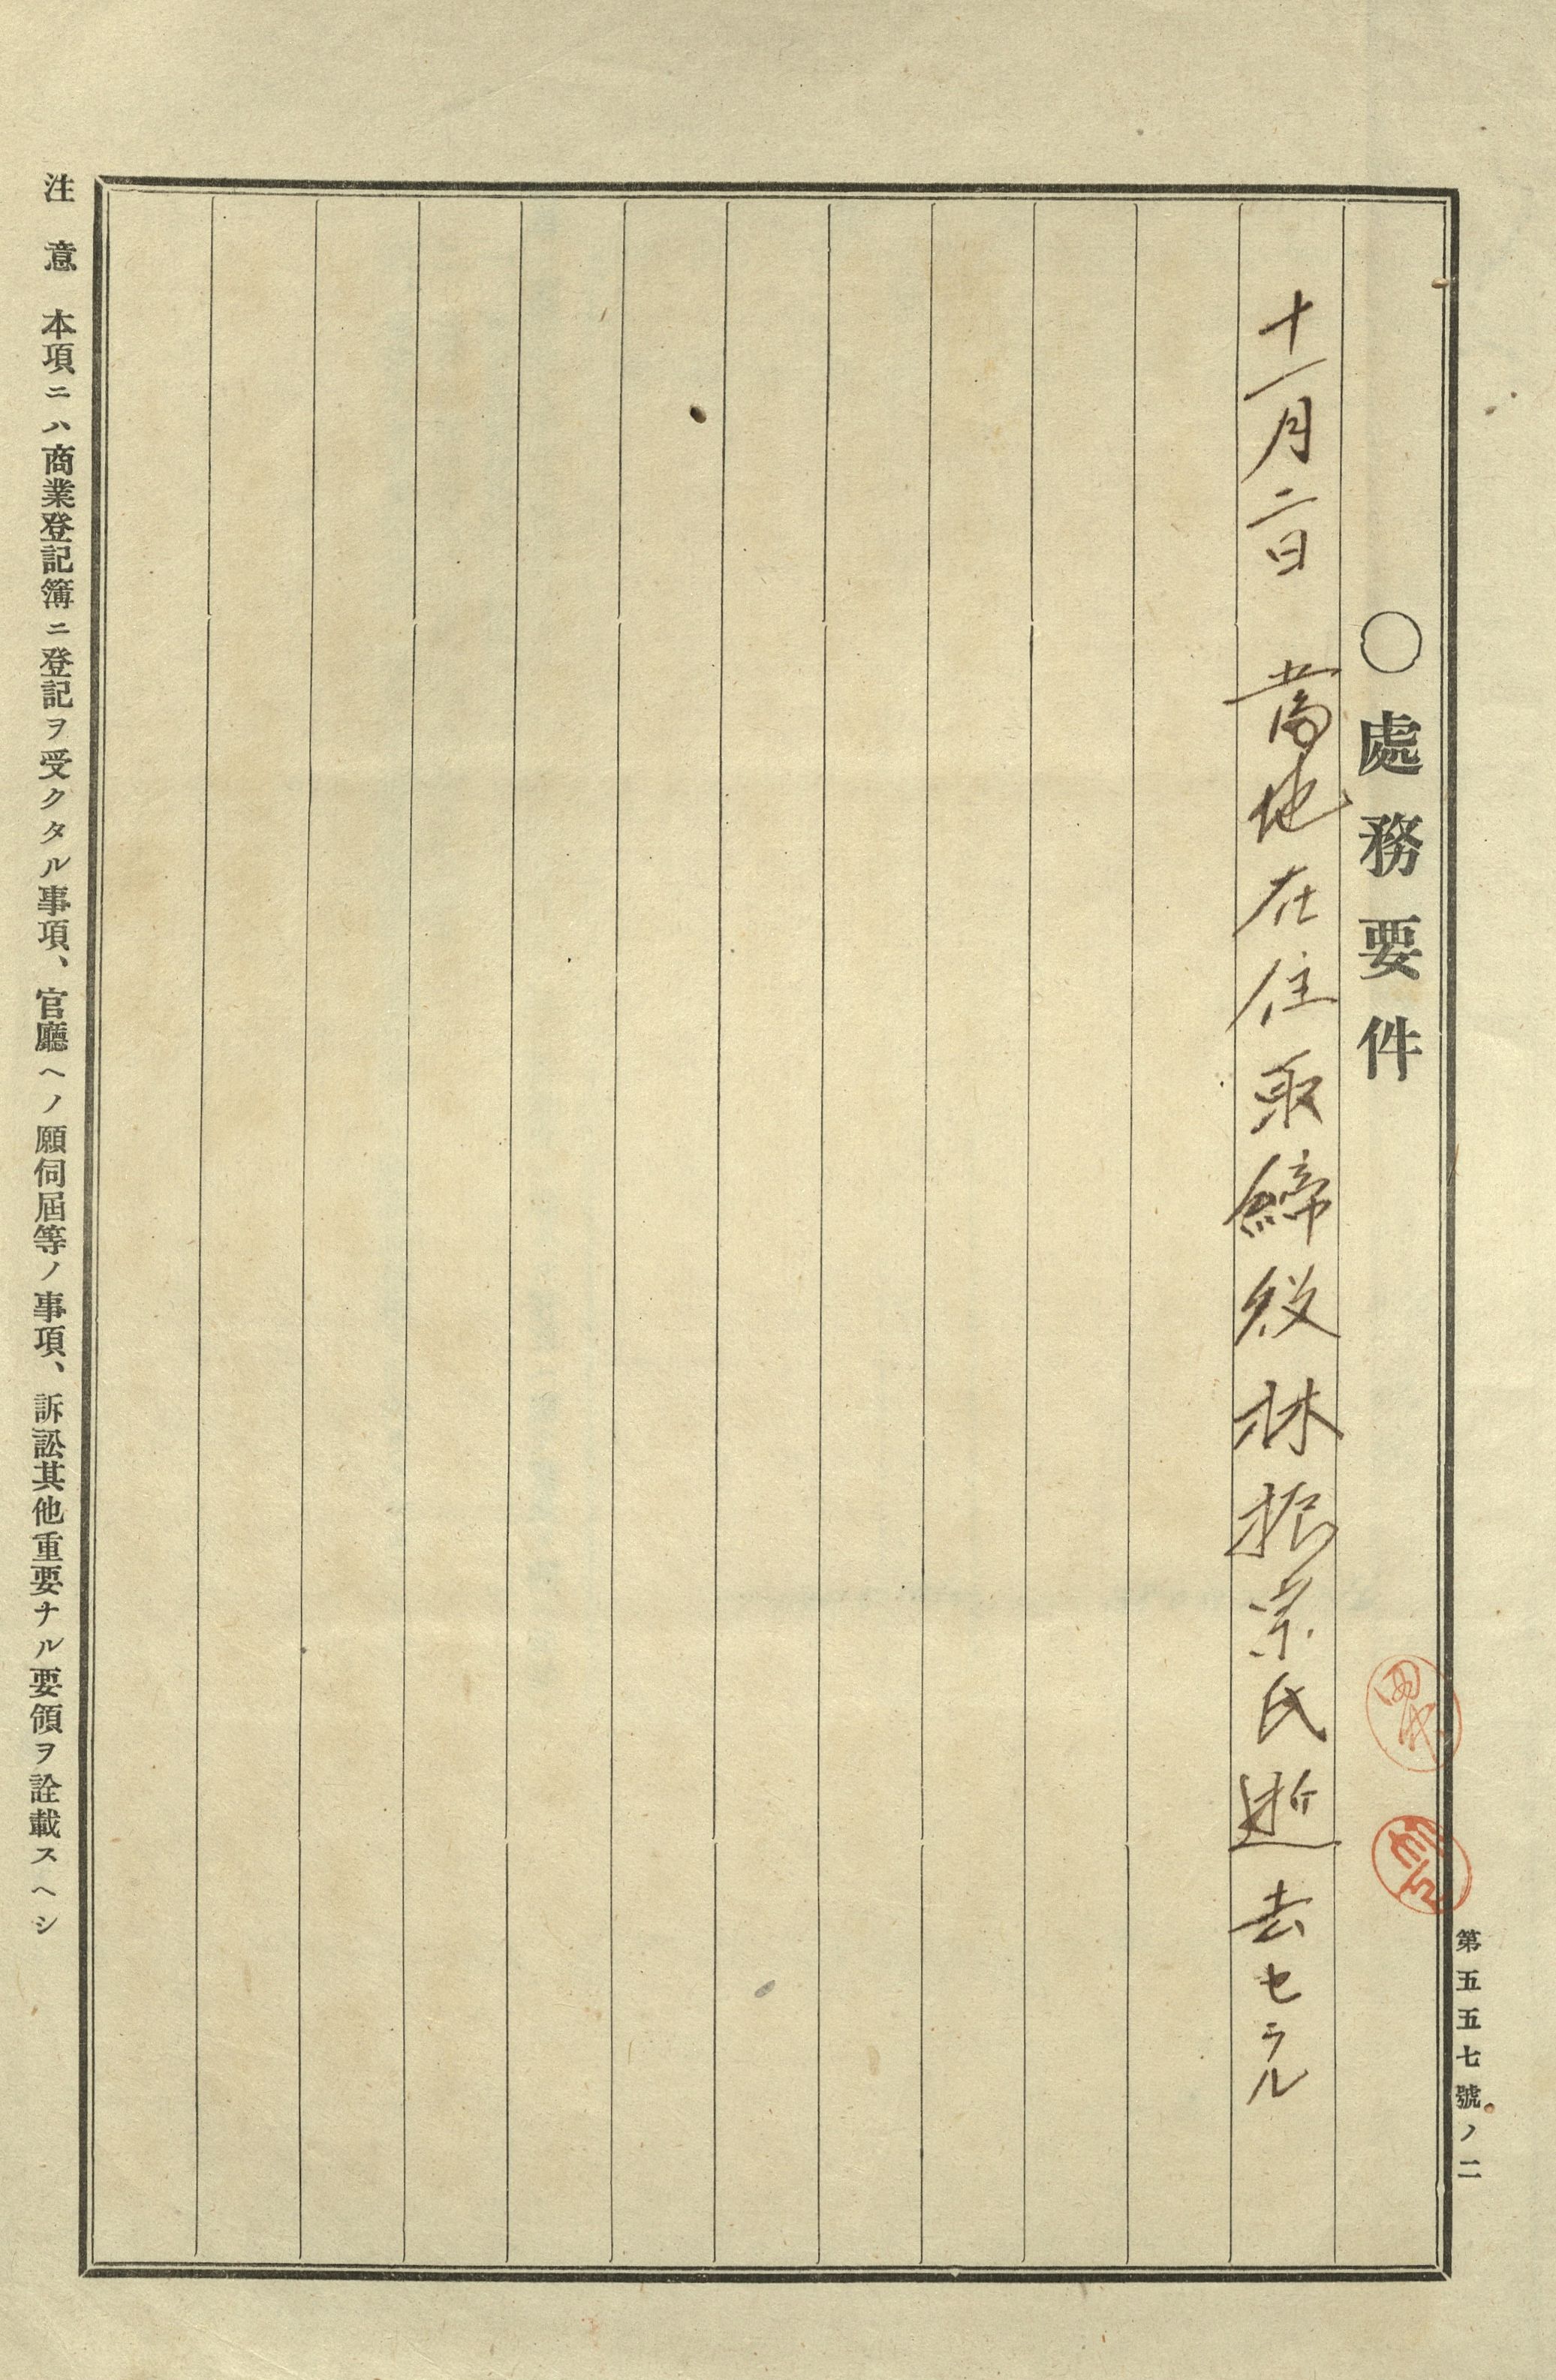 第五五七號ノ二
〇處務要件
十一月二日　當地在住取締役林振宗氏逝去セラル
注意　本項ニハ商業登記簿ニ登記ヲ受クタル事項、官廳ヘノ願伺屆等ノ事項、訴訟其他重要ナル要領ヲ詮載スヘシ